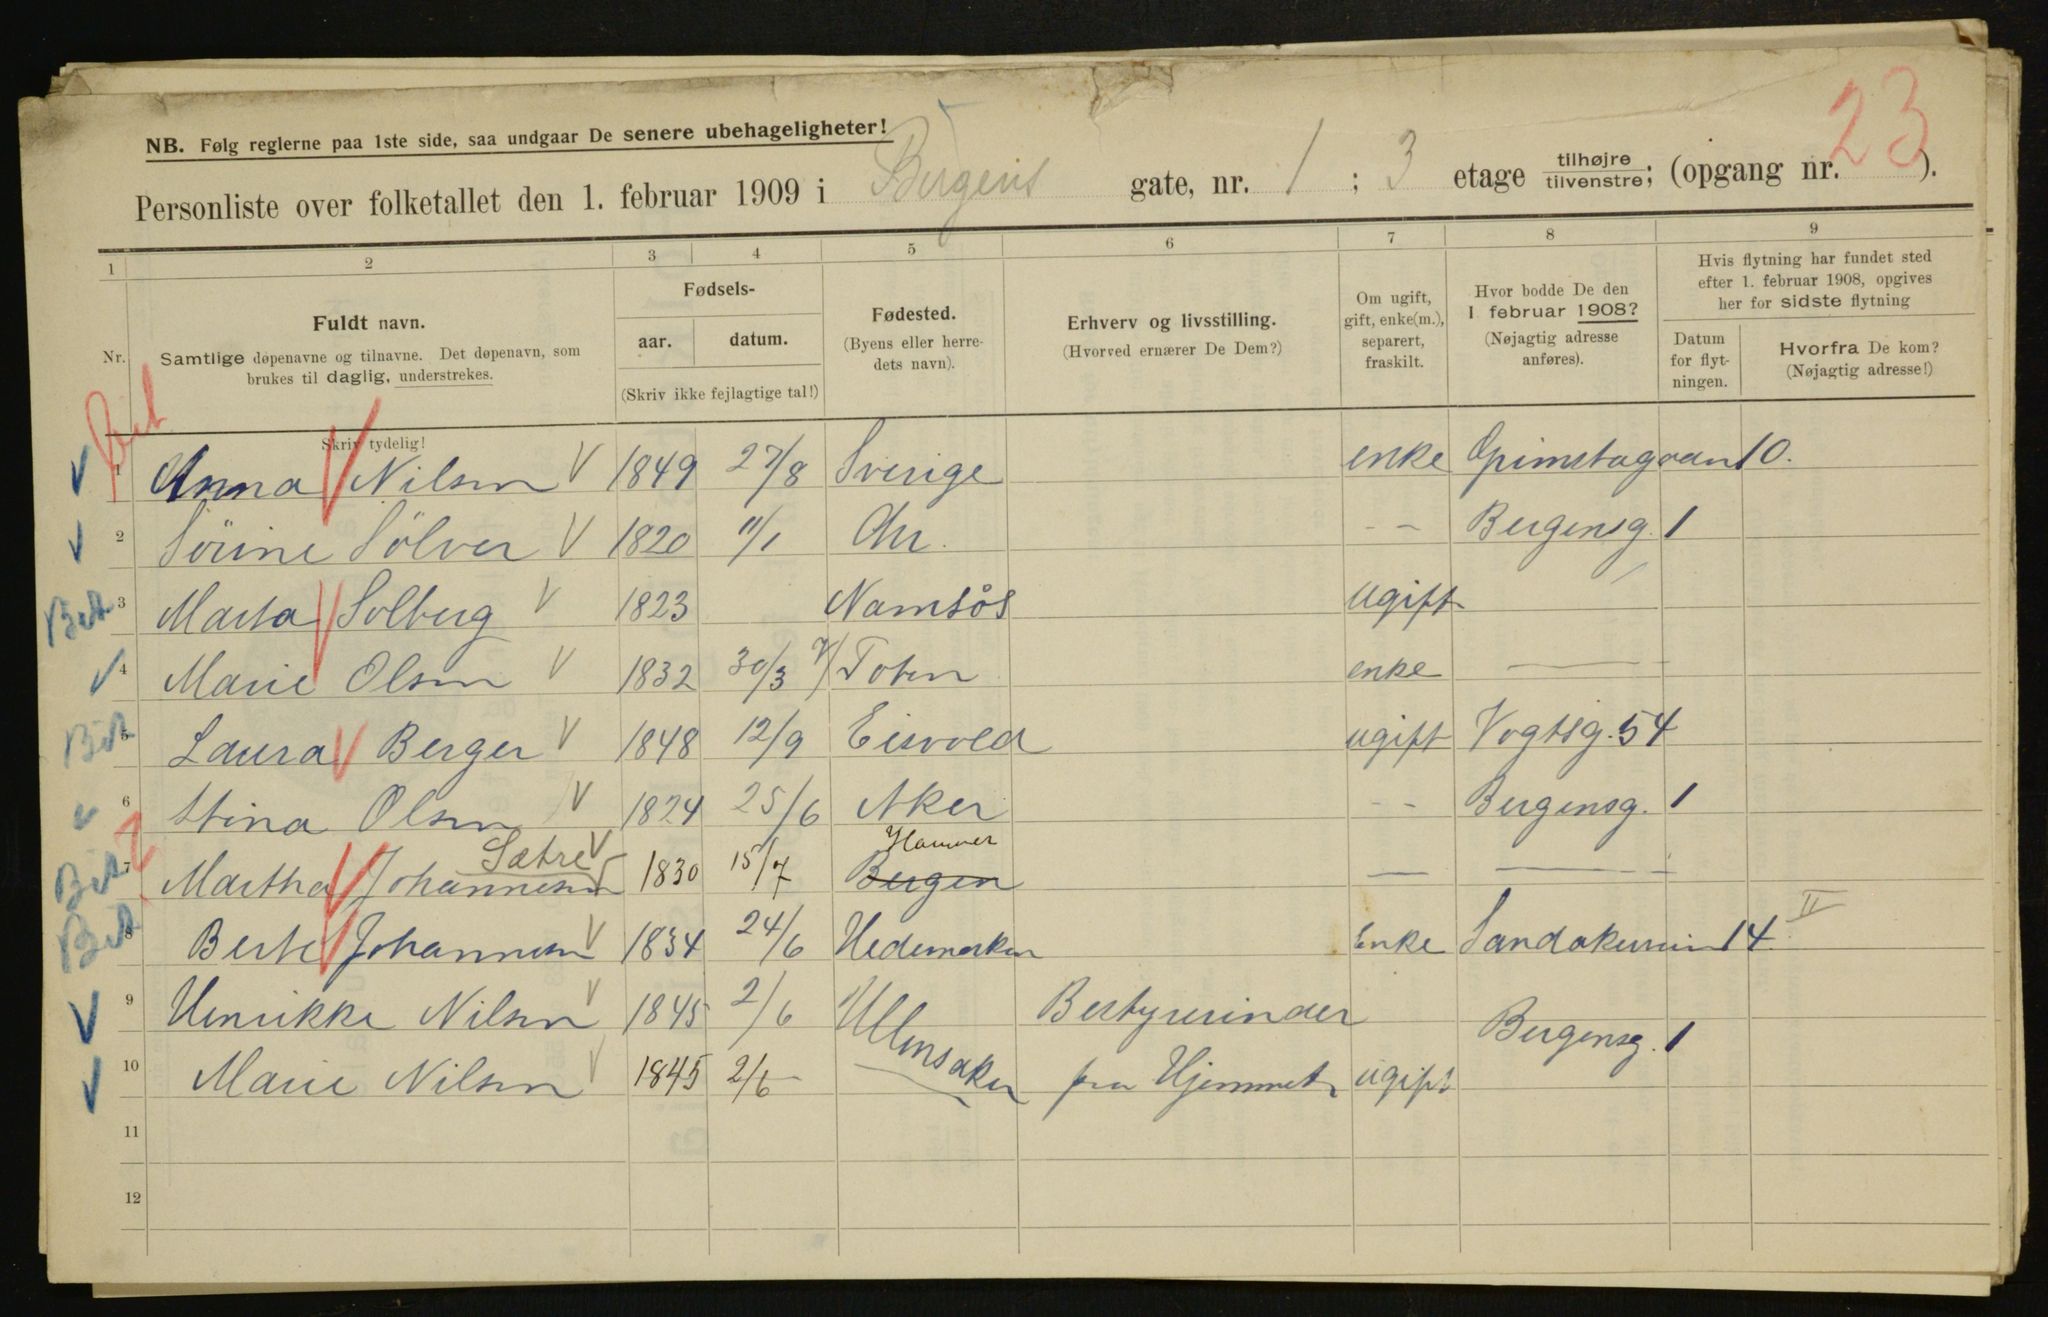 23
NB. Følg reglerne paa 1ste side, saa undgaar De senere ubehageligheter!
Personliste over folketallet den 1. februar 1909 i Bergens gate, nr. 1 ; 3 etage tilhøjre tilvenstre; (opgang nr. ).
1 2 3 4 5 6 7 8 9
Nr.
Fuldt navn.
Samtlige døpenavne og tilnavne. Det døpenavn, som
brukes til daglig, understrekes.
Skriv tydelig!
Fødsels-
aar. datum.
(Skriv ikke fejlagtige tal!)
Fødested.
(Byens eller herre-
dets navn).
Erhverv og livsstilling.
(Hvorved ernærer De Dem?)
Om ugift,
gift, enke(m.),
separert,
fraskilt.
Hvor bodde De den
1 februar 1908?
(Nøjagtig adresse
anføres).
Hvis flytning har fundet sted
efter 1. februar 1908, opgives
her for sidste flytning
Datum
for flyt-
ningen.
Hvorfra De kom?
(Nøjagtig adresse!)
Bet
V 1 Anna Nilsen V 1849 27/8 Sverige enke 10.
V 2 Sörine Sölver V 1820 11/1 Chr. - - Bergensg. 1
Bet 3 Marta Solberg V 1823 Namsös ugift
V 4 Marie Olsen V 1832 30/3 V/ Toten enke —
Bet 5 Laura Berger V 1848 12/9 Eisvold ugift Vogtsg. 54
V 6 Stina Olsen V 1824 25/6 Aker - - Bergensg. 1
Sætre V Hammer
Bet 7 Martha Johannesen 1830 15/7 Bergen — —
Bet 8 Berte Johannesen V 1834 24/6 Hedemarken Enke 14 II
V 9 Henrikke Nilsen V 1845 2/6 Ullensaker Bestyrerinder Bergensg. 1
V 10 Marie Nilsen V 1845 2/6 — for Hjemmet ugift
11
12